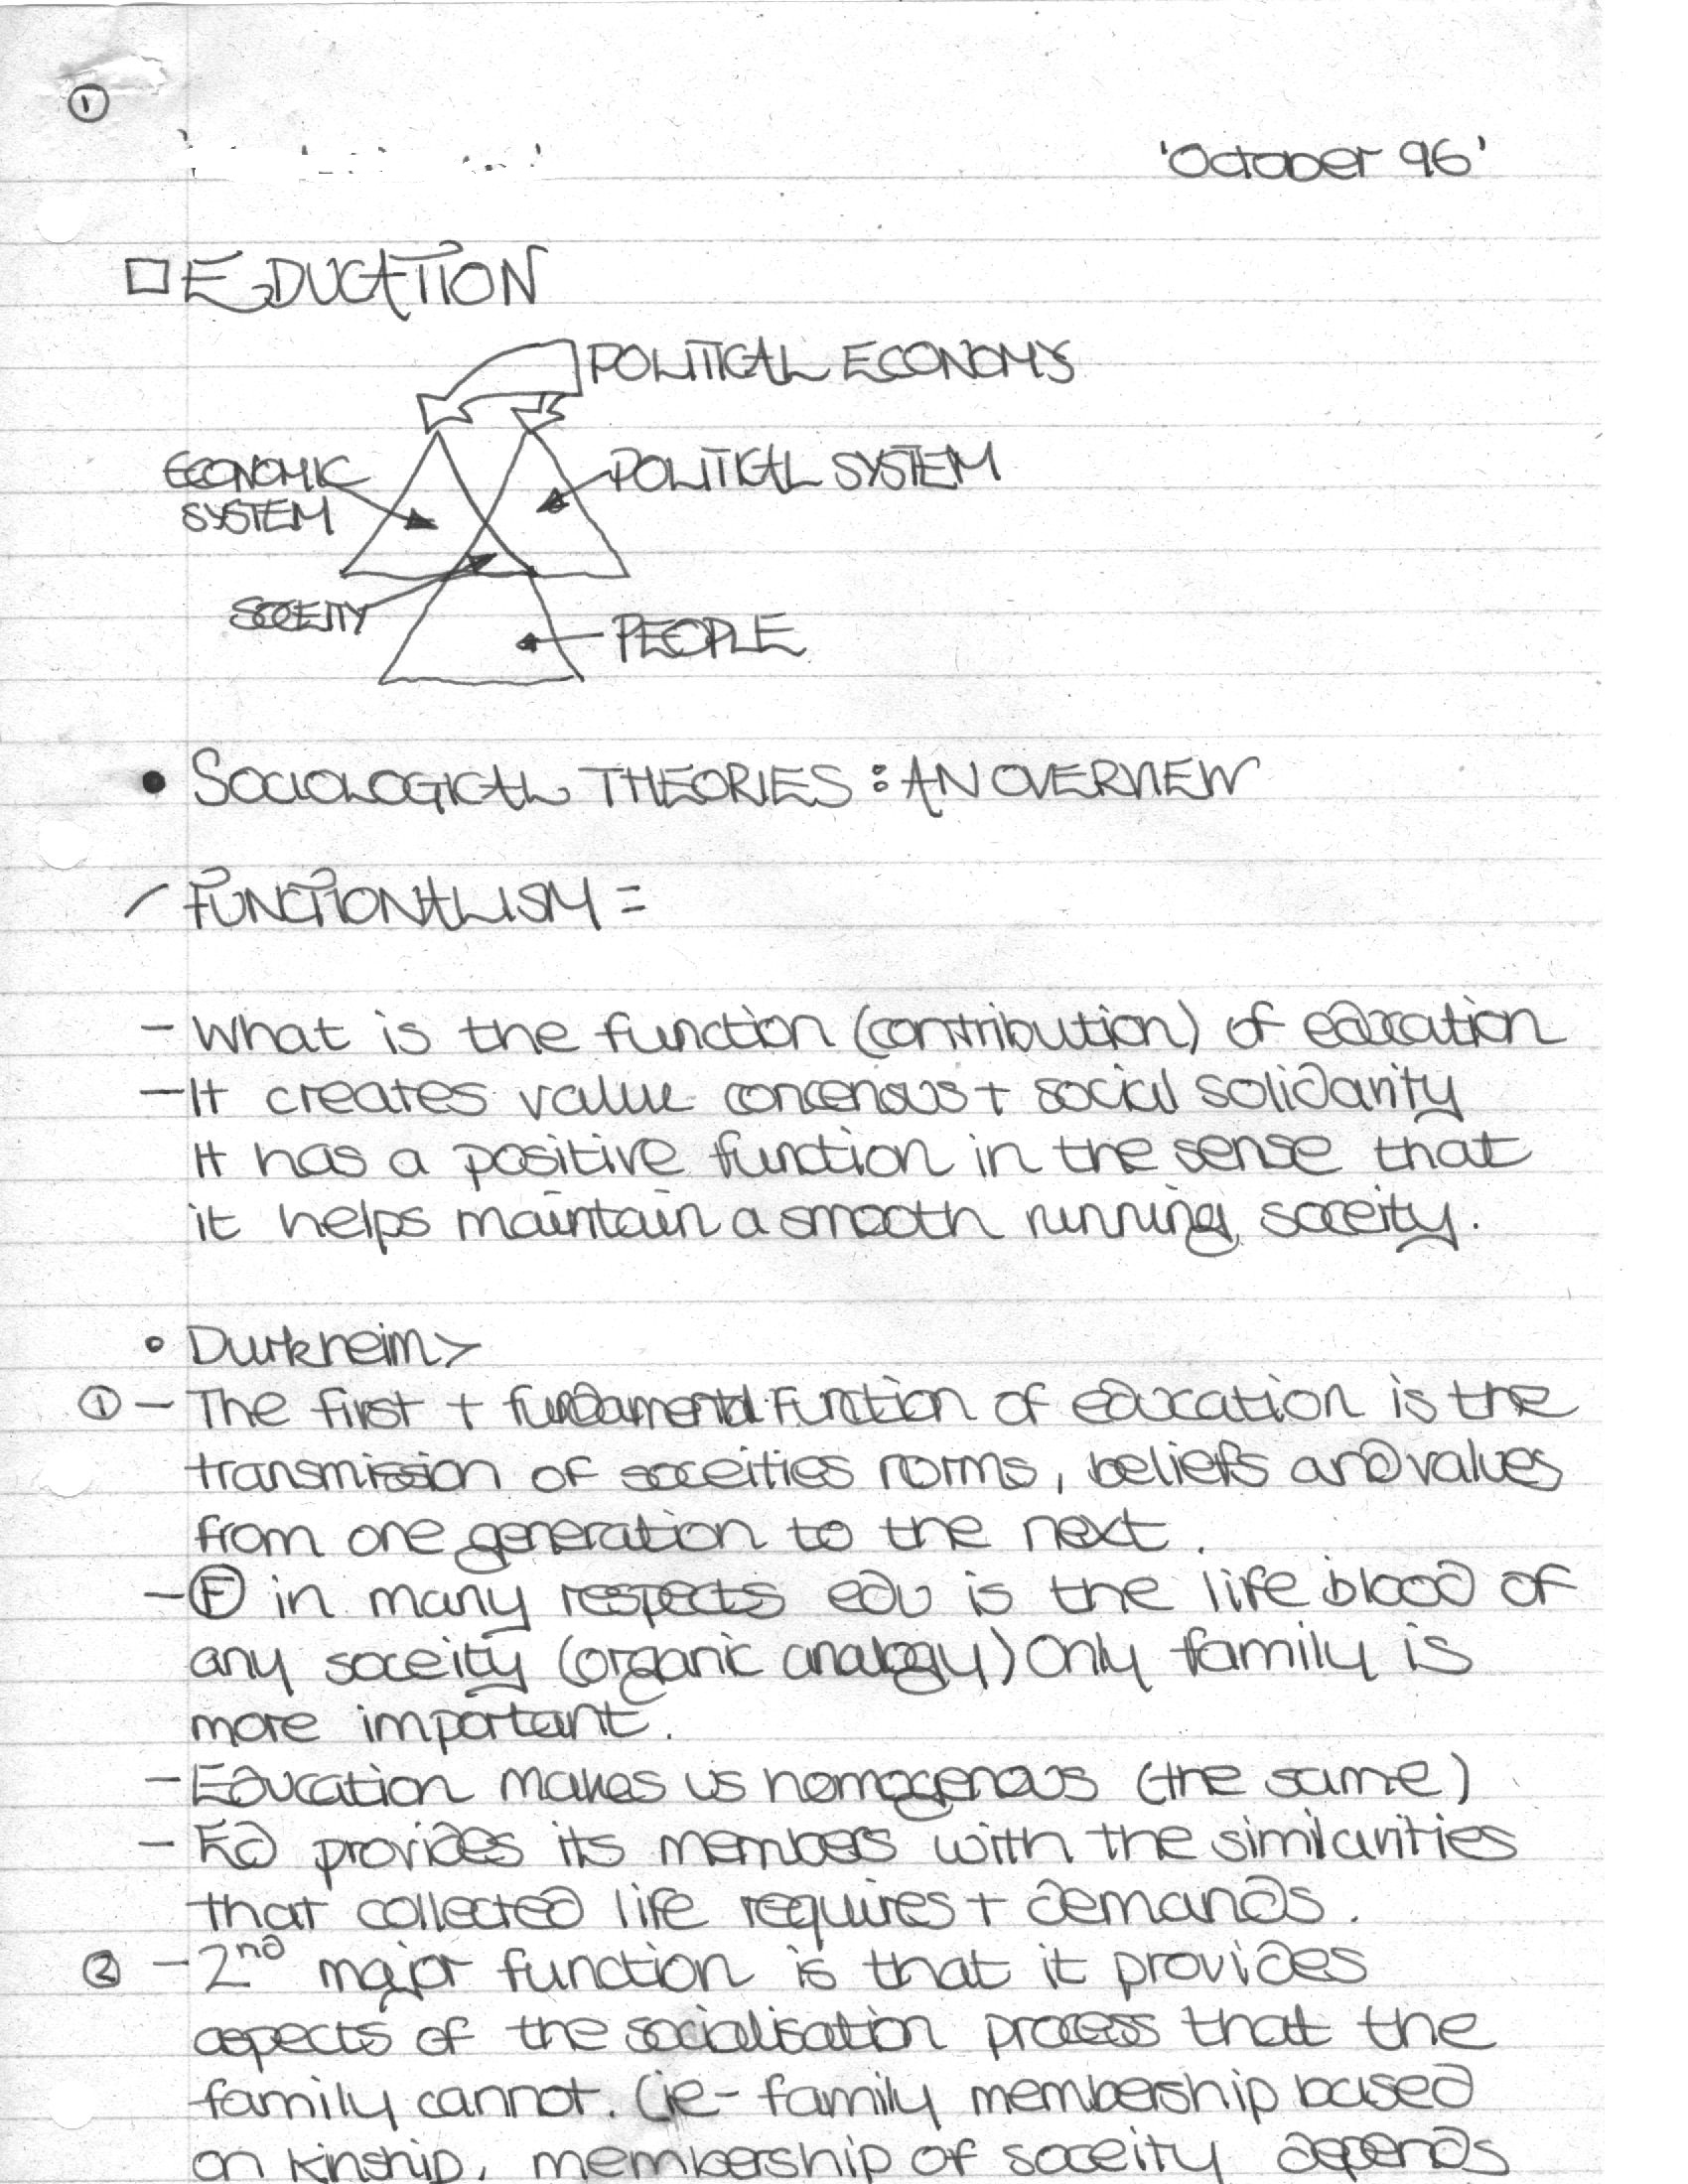 ①
'October 96'
□ EDUCATION
POLITICAL ECONOMY
ECONOMIC
SYSTEM
POLITICAL SYSTEM
SOCEITY
PEOPLE
• SOCIOLOGICAL THEORIES : AN OVERVIEW
/ FUNCTIONALISM =
- What is the function (contribution) of education
- It creates value concensus + social solidarity
It has a positive function in the sense that
it helps maintain a smooth running soceity.
• Durkheim >
① - The first + fundamental function of education is the
transmission of soceities norms, beliefs and values
from one generation to the next.
- Ⓕ in many respects edu is the life blood of
any soceity (organic analogy) Only family is
more important.
- Education makes us homogenous (the same)
- Ed provides its members with the similarities
that collected life requires + demands.
② - 2nd major function is that it provides
aspects of the socialisation process that the
family cannot. (ie - family membership based
on kinship, membership of soceity depends